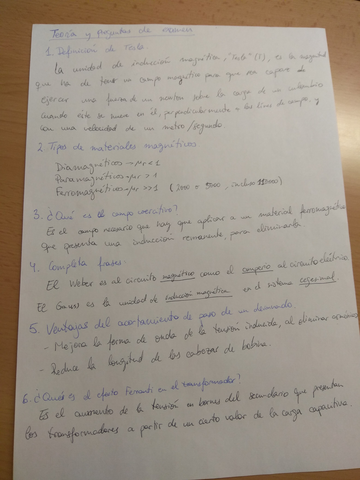 Teoría y preguntas de examen
1. Definición de Tesla
La unidad de inducción magnética, "Tesla" (T), es la magnitud
que ha de tener un campo magnético para que sea capaz de
ejercer una fuerza de un newton sobre la carga de un culombio
cuando este se mueve en él, perpendicularmente a las líneas de campo, y
con una velocidad de un metro/segundo.
2. Tipos de materiales magnéticos
Diamagnéticos → μr < 1
Paramagnéticos → μr > 1
Ferromagnéticos → μr >> 1 (2000 ÷ 5000, incluso
3. ¿Qué es el campo coercitivo?
Es el campo necesario que hay que aplicar a un material ferromagnético
que presenta una inducción remanente, para eliminarla.
4. Completa frases:
El Weber es al circuito magnético como el amperio al circuito eléctrico.
El Gauss es la unidad de inducción magnética en el sistema cegesimal.
5. Ventajas del acortamiento de paso de un devanado.
- Mejora la forma de onda de la tensión inducida, al eliminar armónicos
- Reduce la longitud de las cabezas de bobina.
6. ¿Qué es el efecto Ferranti en el transformador?
Es el aumento de la tensión en bornes del secundario que presentan
los transformadores a partir de un cierto valor de la carga capacitiva.